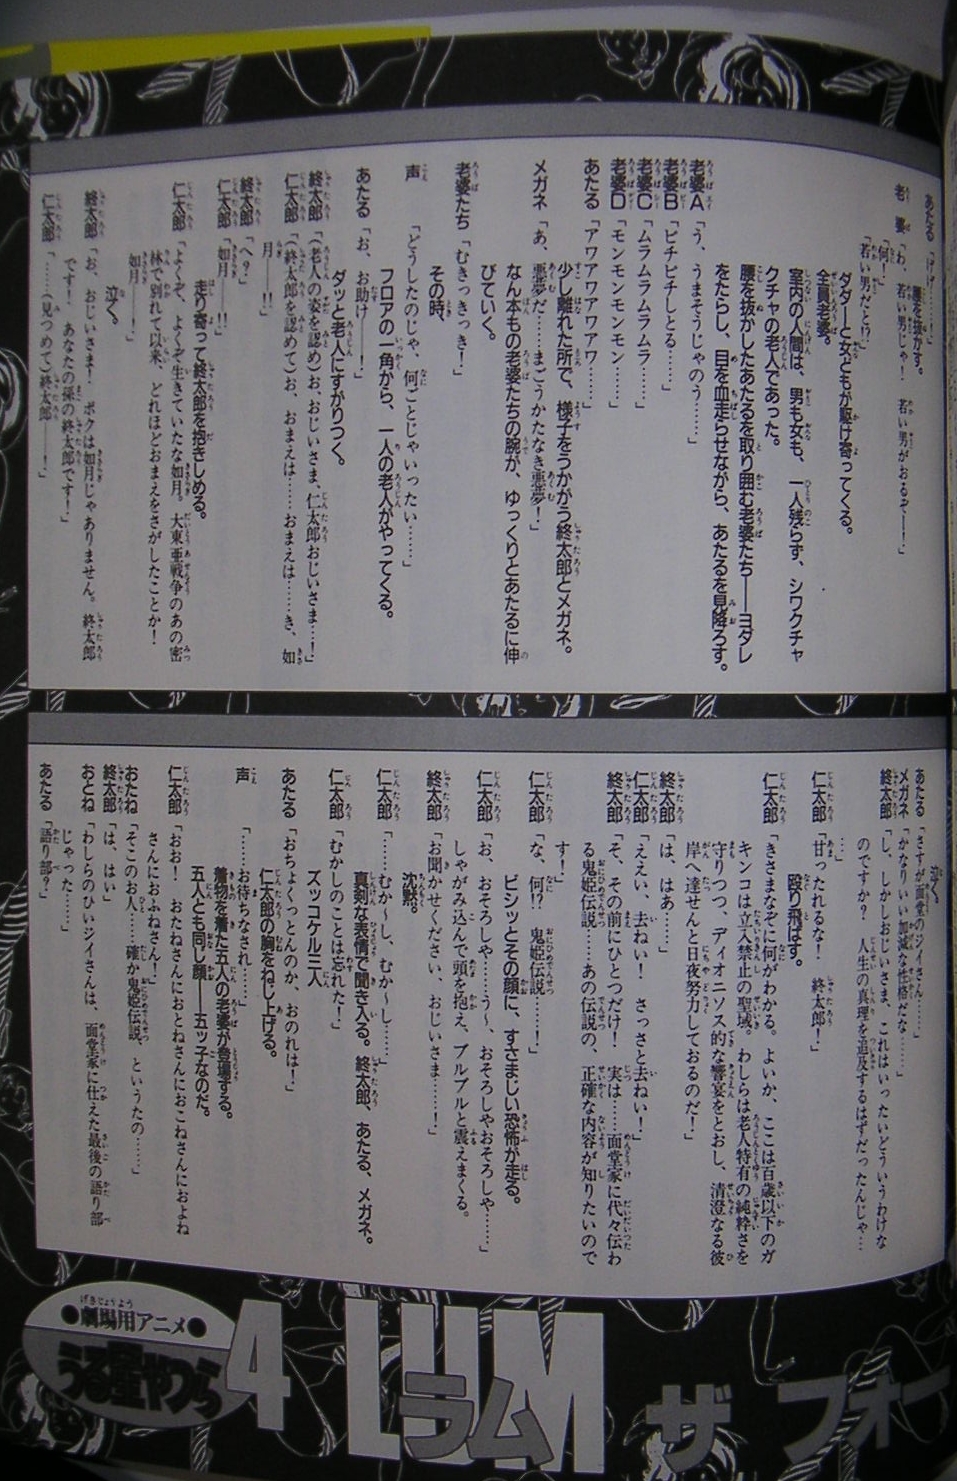 あたる「げげ……」
腰を抜かす。
老　婆「わ、若い男じゃ！　若い男がおるぞ――！」
「何！」
「若い男だと!?」
ダダーと女どもが駆け寄ってくる。
全員老婆。
室内の人間は、男も女も、一人残らず、シワクチャ
クチャの老人であった。
腰を抜かしたあたるを取り囲む老婆たち――ヨダレ
をたらし、目を血走らせながら、あたるを見降ろす。
老婆A「う、うまそうじゃのう……」
老婆B「ピチピチしとる……」
老婆C「ムラムラムラムラ……」
老婆D「モンモンモンモン……」
あたる「アワアワアワアワ……」
少し離れた所で、様子をうかがう終太郎とメガネ。
メガネ「あ、悪夢だ……まごうかたなき悪夢！」
なん本もの老婆たちの腕が、ゆっくりとあたるに伸
びていく。
老婆たち「むきっきっき！」
その時、
声　「どうしたのじゃ、何ごとじゃいったい……」
フロアの一角から、一人の老人がやってくる。
あたる「お、お助け――！」
ダッと老人にすがりつく。
終太郎「(老人の姿を認め)お、おじいさま、仁太郎おじいさま…！」
仁太郎「(終太郎を認めて)お、おまえは……おまえは……き、如
月――!!」
終太郎「へ？」
仁太郎「如月――!!」
走り寄って終太郎を抱きしめる。
仁太郎「よくぞ、よくぞ生きていたな如月。大東亜戦争のあの密
林で別れて以来、どれほどおまえをさがしたことか！
如月――！」
泣く。
終太郎「お、おじいさま！　ボクは如月じゃありません。終太郎
です！　あなたの孫の終太郎です！」
仁太郎「……(見つめて)終太郎――！」
泣く。
あたる「さすが面堂のジイさん……」
メガネ「かなりいい加減な性格だな……」
終太郎「し、しかしおじいさま、これはいったいどういうわけな
のですか？　人生の真理を追及するはずだったんじゃ…
…」
仁太郎「甘ったれるな！　終太郎！」
殴り飛ばす。
仁太郎「きさまなぞに何がわかる。よいか、ここは百歳以下のガ
キンコは立入禁止の聖域。わしらは老人特有の純粋さを
守りつつ、ディオニソス的な饗宴をとおし、清澄なる彼
岸へ達せんと日夜努力しておるのだ！」
終太郎「は、はあ……」
仁太郎「ええい、去ねい！　さっさと去ねい！」
終太郎「そ、その前にひとつだけ！　実は……面堂家に代々伝わ
る鬼姫伝説……あの伝説の、正確な内容が知りたいので
す！」
仁太郎「な、何!?　鬼姫伝説……！」
ビシッとその顔に、すさまじい恐怖が走る。
仁太郎「お、おそろしや……う〜、おそろしやおそろしや……」
しゃがみ込んで頭を抱え、ブルブルと震えまくる。
終太郎「お聞かせください、おじいさま……！」
沈黙。
仁太郎「……むか〜し、むか〜し……」
真剣な表情で聞き入る。終太郎、あたる、メガネ。
仁太郎「むかしのことは忘れた！」
ズッコケル三人
あたる「おちょくっとんのか、おのれは！」
仁太郎の胸をねじ上げる。
声　「……お待ちなされ……」
着物を着た五人の老婆が登場する。
五人とも同じ顔――五ッ子なのだ。
仁太郎「おお！　おたねさんにおとねさんにおこねさんにおよね
さんにおふねさん！」
おたね「そこのお人……確か鬼姫伝説、というたの……」
終太郎「は、はい」
おとね「わしらのひいジイさんは、面堂家に仕えた最後の語り部
じゃった……」
あたる「語り部？」
●劇場用アニメ●
うる星やつら
4
LUM
ラム
ザ フォー